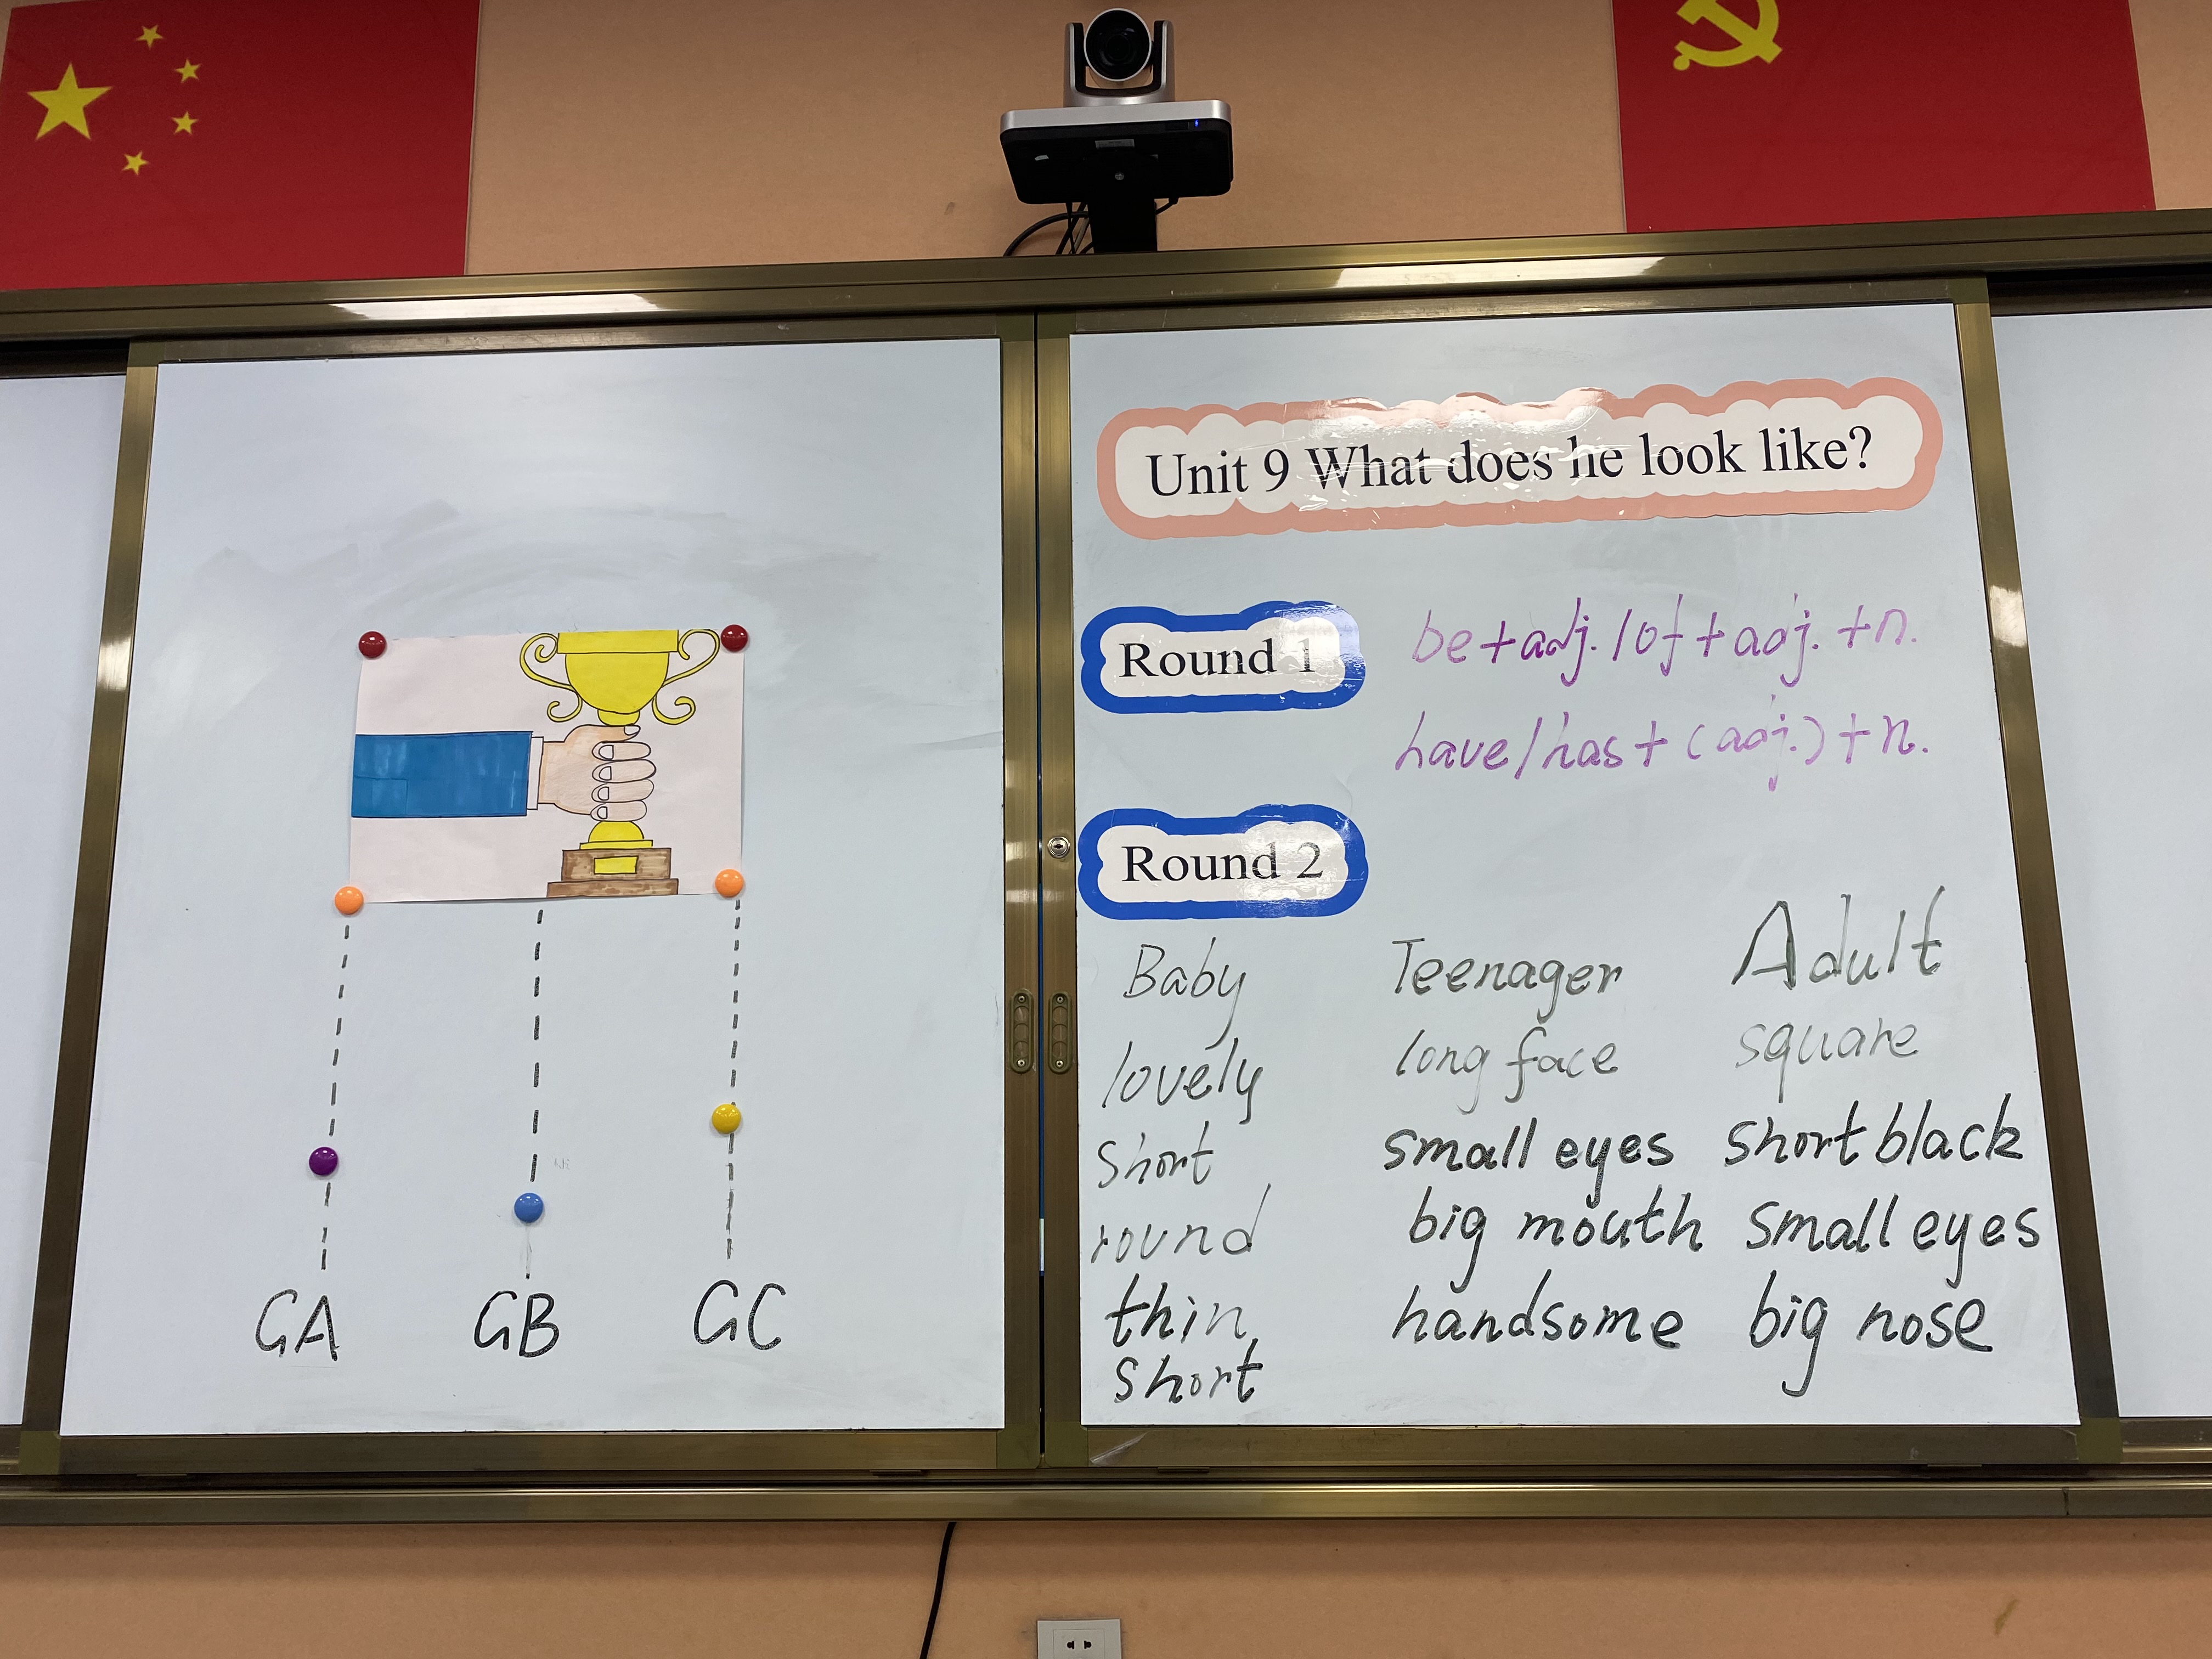 Unit 9 What does he look like?
Round 1
be+adj./of+adj.+n.
have/has+(adj.)+n.
Round 2
Baby Teenager Adult
lovely long face square
short small eyes short black
round big mouth small eyes
thin, handsome big nose
short
GA GB GC